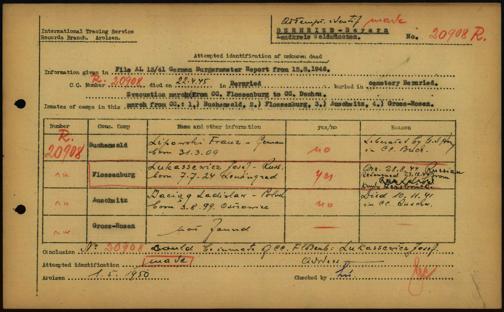 Attempt. identif. made
International Tracing Service
Records Branch. Arolsen.
BERNRIED-Bavaria
Landkreis Weilheim
No. 20908 R.
Attempted identification of unknown dead
Information given in File AL 12/61 German Burgermaster Report from 15.8.1946.
C.C. Number R. 20908 died on 28.4.45 in Bernried buried in cemetery Bernried.
Evacuation march from CC. Flossenburg to CC. Dachau.
Inmates of camps in this march from CC.: 1.) Buchenwald, 2.) Flossenburg, 3.) Auschwitz, 4.) Gross-Rosen.
Number Conc. Camp Name and other information yes/no Reason
R. 20908 Buchenwald Lipowski Franz - German born 31.3.09 no Liberated by
in CC. Buch.
" " Flossenburg Lukassewicz Josef - Russ. born 7.7.24 Leningrad yes Russian
" " Auschwitz Ladislav - born 3.8.99 no Died 10.11.41
in CC. Ausch.
" " Gross-Rosen not found
Conclusion No 20908 could be inmate of CC. Flossenb: Lukassewicz Josef.
Attempted identification made
Arolsen 1.5.1950 Checked by